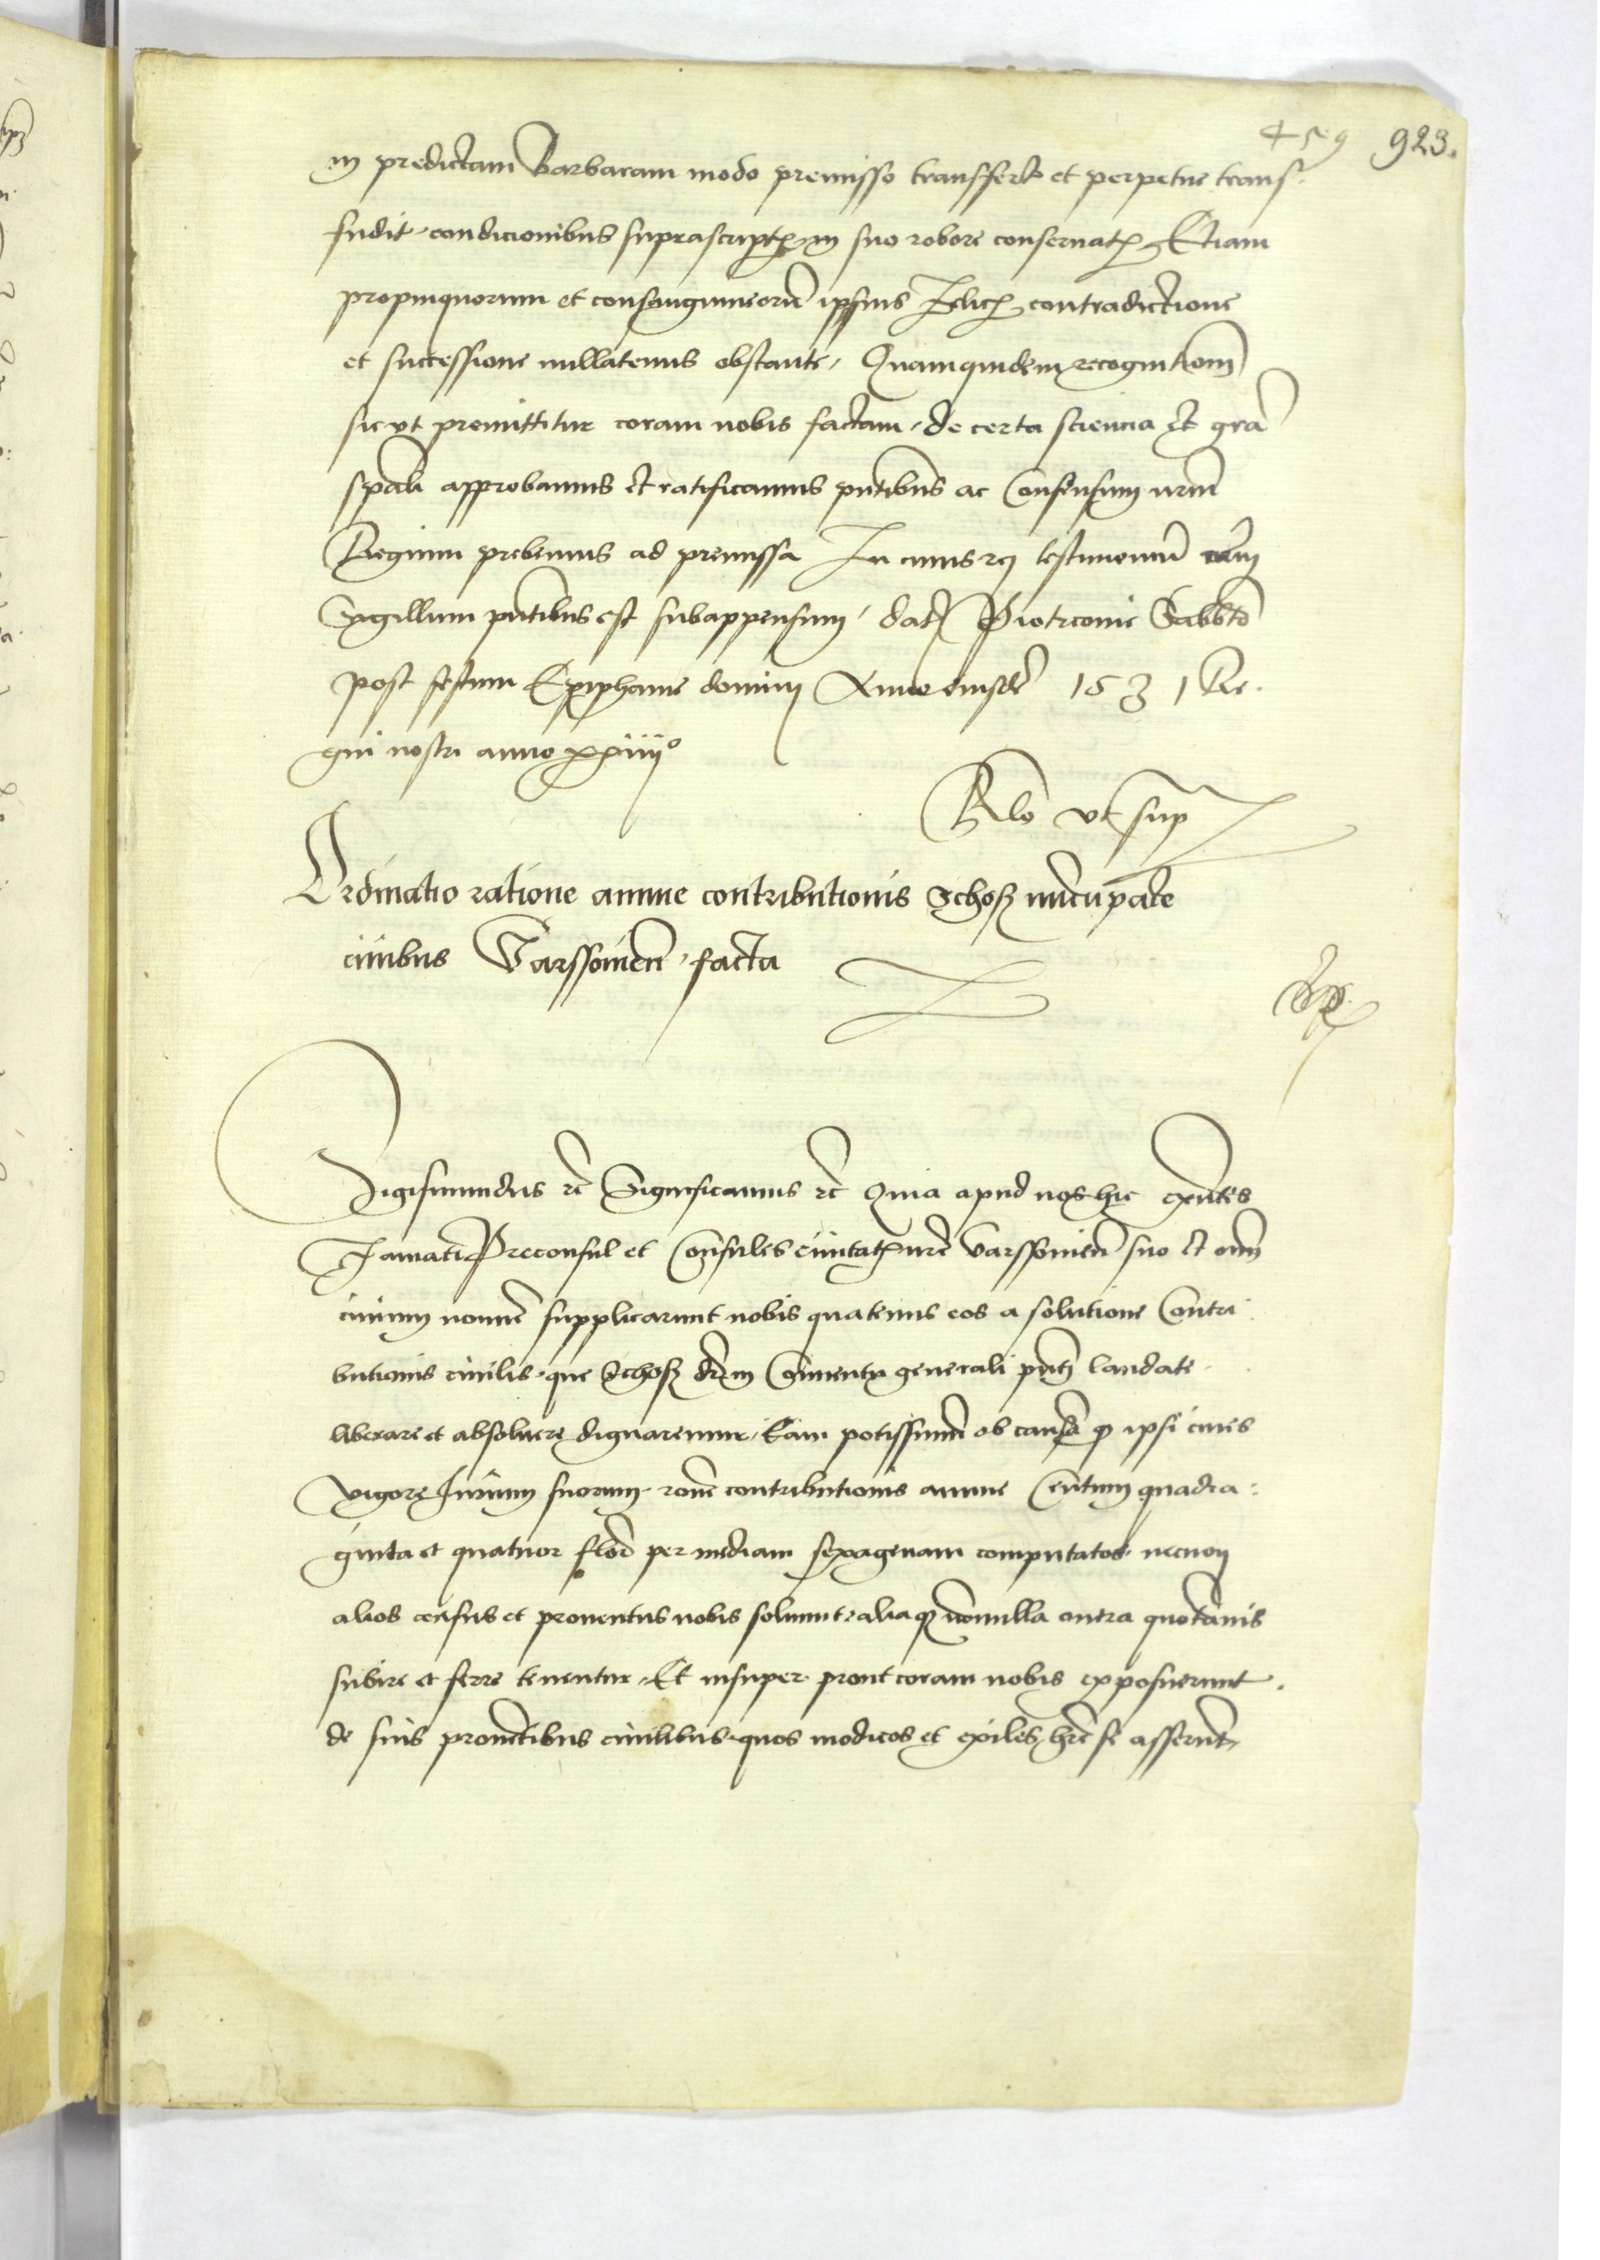 459 923.
in predictam Barbaram modo premisso transfert et perpetue trans
fudit condicionibus suprascript in suo robore conseruat Etiam
propinquorum et consanguineoru ipsius contradictione
et successione nullatenus obstante, Quamquidem recognitiom
sic vt premittitur coram nobis factam, de certa sciencia et gra
spali approbamus et ratificamus pntibus ac Consensum nrm
Regium prebemus ad premissa In cuius rei testimoniu
Sigillum pntibus est subappensum, dat Piotrcouie Sabbto
post festum Epiphanie domini Anno eiusde 1531 Re
gni nostri anno xxiiii°
Rlo vt sup
Ordinatio ratione annue contributionis Schoss nucupate
ciuibus Varssouien, facta
Sigismundus rc Significamus rc Quia apud nos hic exntes
Famati Preconsul et Consules ciuitat nre Varssouien suo et oim
ciuium nomine supplicarunt nobis quatenus eos a solutione Contri
butionis ciuilis que Schoss dr in Conuentu generali pnti laudate
liberare et absoluere dignaremur, Eam potissimu ob causa q ipsi ciues
vigore Iurium suorum rone contributionis annue Centum quadra:
ginta et quatuor flor per mediam sexagenam computatos necnon
alios census et prouentus nobis soluunt, aliaq nonnulla onera quotannis
subire et ferre tenentur, Et insuper prout coram nobis exposuerunt
de suis prouentibus ciuilibus quos modicos et exiles hre se asserunt